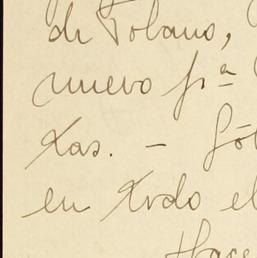 de Tobano,
nuevo pª
Xas. — Só
en Xvdo el
Hace